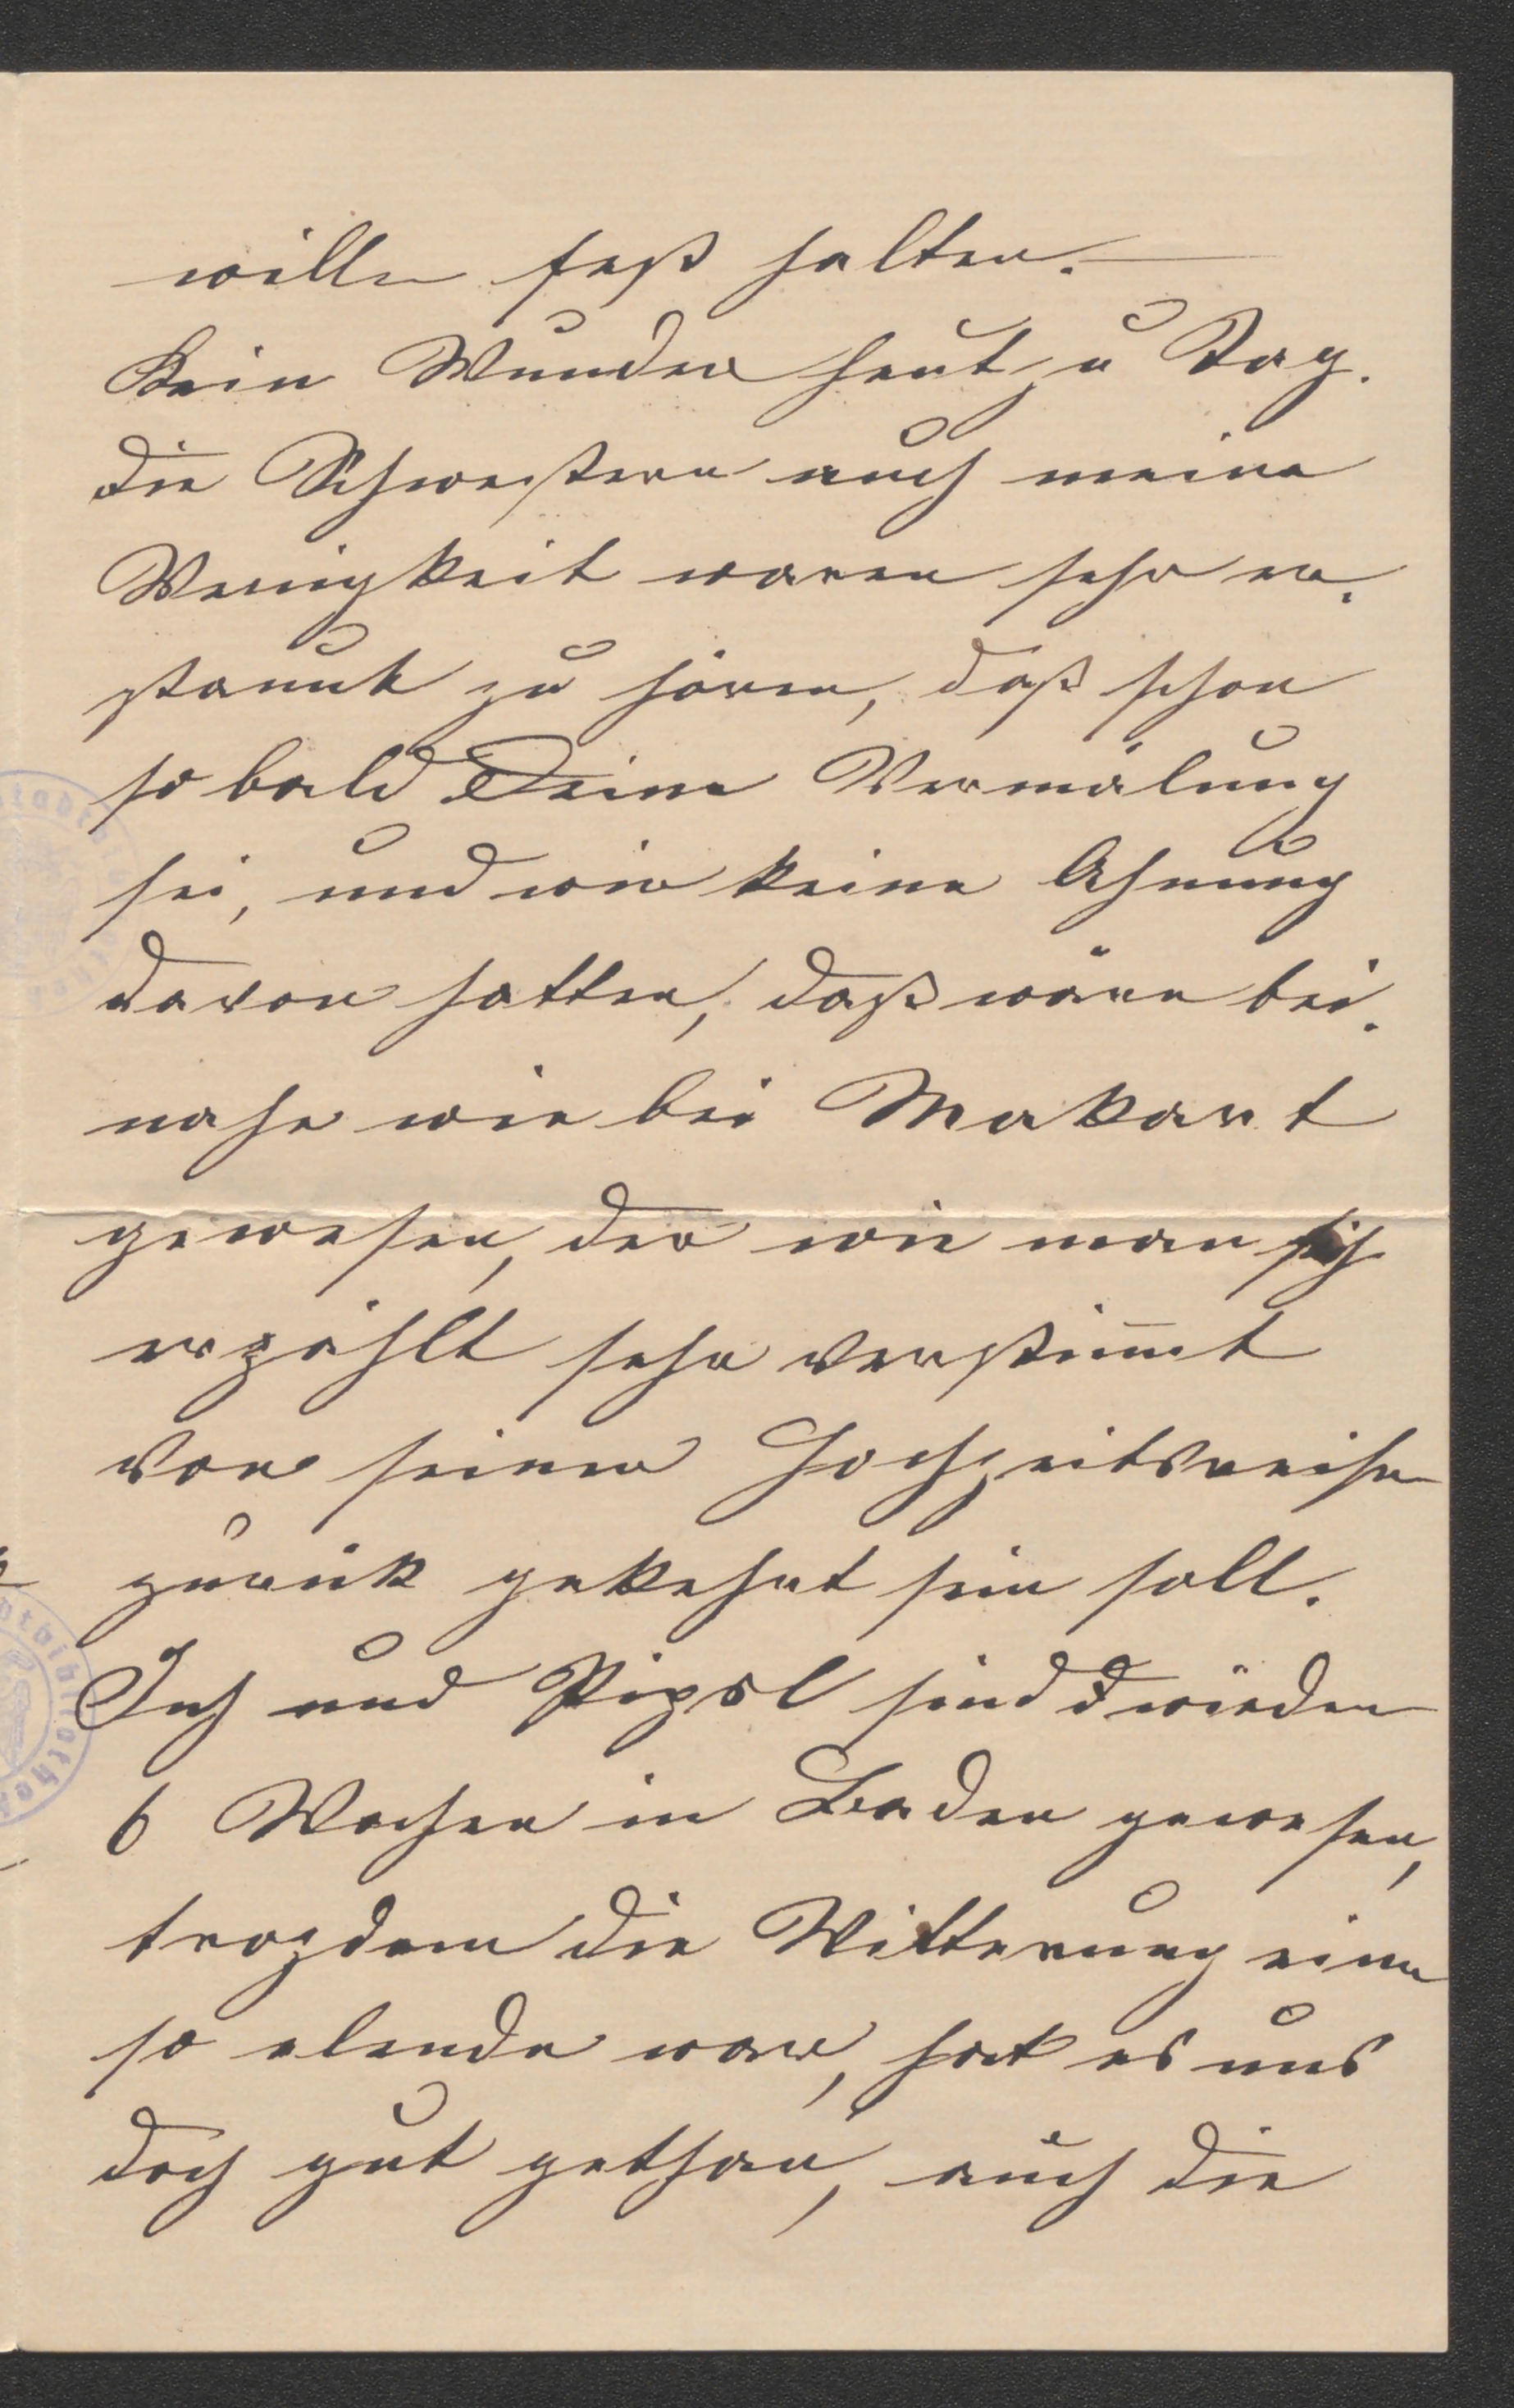 willen fest halten. —
Kein Wunder heut zu Tag.
die Schwestern auch meine
Wenigkeit waren sehr er-
staunt zu hören, daß schon
so bald Deine Vermälung
sei, und wir keine Ahnung
davon hatten, daß wäre bei-
nahe wie bei Makart
gewesen, der wie man sich
erzählt sehr verstim̄t
von seiner Hochzeitsreise
zurück gekehrt sein soll.
Ich und Pipsl sind wieder
6 Wochen in Baden gewesen,
trozdem die Witterung eine
so elende war, hat es uns
doch gut gethan, auch die